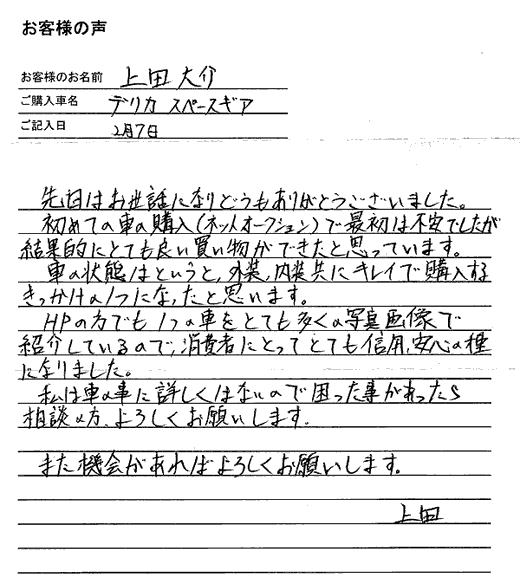 お客様の声
お客様のお名前 上田大介
ご購入車名 デリカ スペースギア
ご記入日 2月7日
先日はお世話になりどうもありがとうございました。
初めての車の購入(ネットオークション)で最初は不安でしたが
結果的にとても良い買い物ができたと思っています。
車の状態はというと、外装、内装共にキレイで購入する
きっかけの1つになったと思います。
HPの方でも1つの車をとても多くの写真、画像で
紹介しているので、消費者にとってとても信用、安心の種
になりました。
私は車の事に詳しくはないので困った事があったら
相談の方、よろしくお願いします。
また機会があればよろしくお願いします。
上田